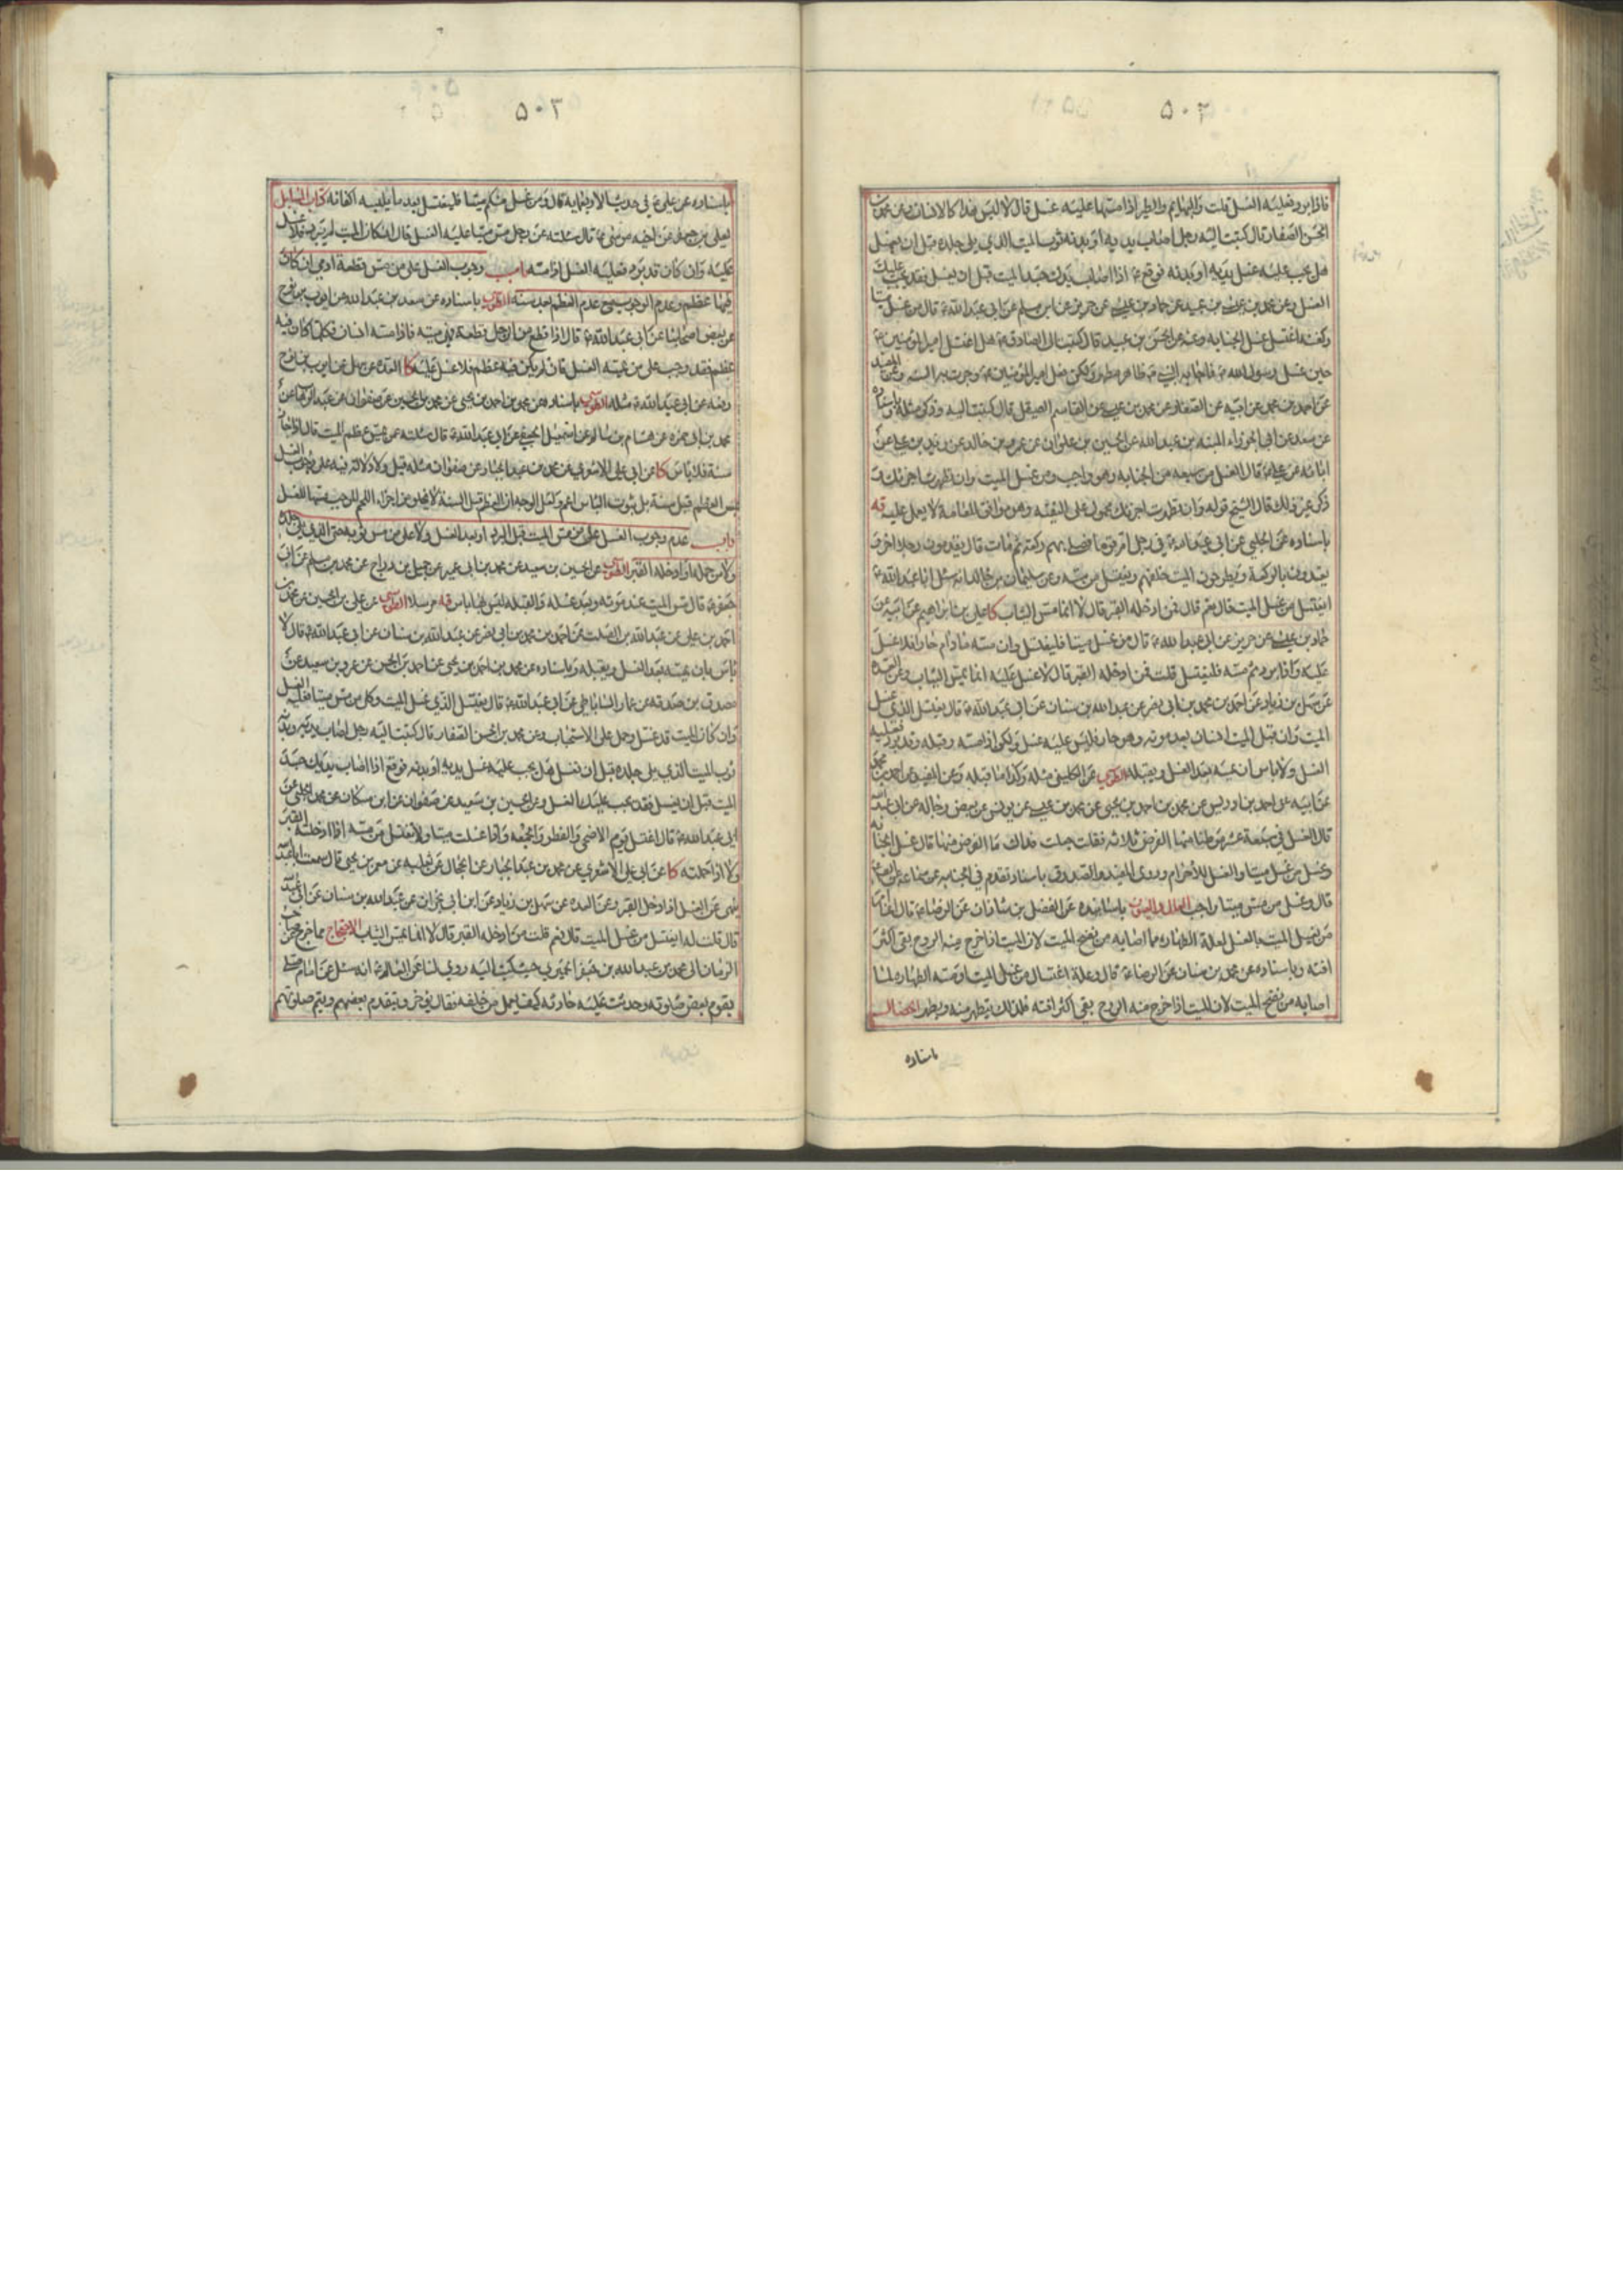 ۵۰۲
فاذا برد فعليه الغسل قلت والبهايم والطير اذا مسها عليه غسل قال لا ليس هذا كالانسان وعن محمد بن
الحسن الصفار قال كتبت اليه رجل اصاب يديه او بدنه ثوب الميت الذي يلي جلده قبل ان يغسل
هل يجب عليه غسل يديه او بدنه فوقع ع اذا اصاب يدك جسد الميت قبل ان يغسل فقد يجب عليك
الغسل وعن محمد بن عن حماد بن عن حريز عن ابن مسلم عن ابي عبد الله ع قال من غسل ميتا
وكفنه اغتسل غسل الجنابه وعنه عن الحسن بن عبيد قال كتبت الى الصادق ع هل اغتسل امير المؤمنين ع
حين غسل رسول الله فاجابه النبي طاهر مطهر ولكن فعل امير المؤمنين ع وجرت به السنه
عن احمد بن محمد عن ابيه عن الصفار عن محمد بن عن القاسم الصيقل قال كتبت اليه وذكر مثله
عن سعد عن ابي الجوزاء المنبه بن عبد الله عن الحسين بن علوان عن عمرو بن خالد عن زيد بن علي عن
ابائه عن علي ع قال الغسل من سبعه من الجنابه وهو واجب ومن غسل الميت وان تطهرت اجزئك
ذكر غير ذلك قال الشيخ قوله وان تطهرت اجزئك محمول على التقيه وهو موافق للعامة لا يعمل عليه يه
باسناده عن الحلبي عن ابي عبد الله ع في رجل ام قوما فصلى بهم ركعة ثم مات قال يقدمون رجلا اخر
يعتدون بالركعة ويطرحون الميت خلفهم ويغتسل من مسه وعن سليمان بن خالد انه سئل ابا عبد الله ع
ايغتسل من غسل الميت قال نعم قال فمن ادخله القبر قال لا انما مس الثياب كا علي بن ابراهيم عن ابيه عن
حماد بن عن حريز عن ابي عبد الله ع قال من غسل ميتا فليغتسل وان مسه مادام حارا فلا غسل
عليه واذا برد ثم مسه فليغتسل قلت فمن ادخله القبر قال لا غسل عليه انما يمس الثياب وعن العدة
عن سهل بن زياد عن احمد بن محمد بن ابي نصر عن عبد الله بن سنان عن ابي عبد الله ع قال يغتسل الذي غسل
الميت وان قبل الميت انسان بعد موته وهو حار فليس عليه غسل ولكن اذا مسه وقبله وقد برد فعليه
الغسل ولا باس ان يمسه بعد الغسل ويقبله الطوسي عن الكليني مثله وكذا ما قبله وعن المفيد عن احمد بن محمد
عن ابيه عن احمد بن ادريس عن محمد بن احمد بن يحيى عن محمد بن عن يونس عن بعض رجاله عن ابي عبد الله
قال الغسل في سبعة عشر موطنا منها الفرض ثلاثه فقلت جعلت فداك ما الفرض منها قال غسل الجنابه
وغسل من غسل ميتا والغسل للاحرام وروى المفيد والصدوق باسناد تقدم في الجنابه عن سماعه عن الصادق
قال وغسل من مس ميتا واجب العلل والعيون باسانيده عن الفضل بن شاذان عن الرضا ع قال انما
من يغسل الميت بالغسل لعلة الطهاره مما اصابه من نضح الميت لان الميت اذا خرج منه الروح بقي اكثر
افته وباسناده عن محمد بن سنان عن الرضا ع قال وعلة اغتسال من غسل الميت او مسه الطهاره لما
اصابه من نضح الميت لان الميت اذا خرج منه الروح بقي اكثر افته فلذلك يتطهر منه ويطهر الخصال
باسناده
۵۰۳
باسناده عن علي ع في حديث الاربعمايه قال ومن غسل منكم ميتا فليغتسل بعد ما يلبسه اكفانه كتاب المسايل
لعلي بن جعفر عن اخيه موسى ع قال سئلته عن رجل مس ميتا عليه الغسل قال ان كان الميت لم يبرد فلا غسل
عليه وان كان قد برد فعليه الغسل اذا مسه باب وجوب الغسل على من مس قطعة ادمي ان كان
فيها عظم وعدم الوجوب بمس عدم العظم بعد سنة الطوسي باسناده عن سعد بن عبد الله عن ايوب بن نوح
عن بعض اصحابنا عن ابي عبد الله ع قال اذا قطع من الرجل قطعة فهي ميته فاذا مسه انسان فكلما كان فيه
عظم فقد وجب على من يمسه الغسل فان لم يكن فيه عظم فلا غسل عليه كا العده عن سهل عن ايوب بن نوح
رفعه عن ابي عبد الله ع مثله الطوسي باسناده عن محمد بن احمد بن يحيى عن محمد بن الحسين عن صفوان عن عبد الوهاب عن
محمد بن ابي حمزه عن هشام بن سالم عن اسمعيل الجعفي عن ابي عبد الله ع قال سئلته عمن يمس عظم الميت قال اذا جاز
سنة فلا باس كا عن ابي علي الاشعري عن محمد بن عبد الجبار عن صفوان مثله قيل ولا دلالة فيه على وجوب الغسل
بمس العظام قبل سنة بل ثبوت الباس اعم ولعل الوجه ان العظم قبل السنة لا يخلو من اجزاء اللحم الموجب مسها للغسل
باب عدم وجوب الغسل على من مس الميت قبل البرد او بعد الغسل ولا على من مس ثوبه حتى الذي يلي جلده
ولا من حمله او ادخله القبر الطوسي عن الحسين بن سعيد عن محمد بن ابي عمير عن جميل بن دراج عن محمد بن مسلم عن ابي
جعفر ع قال مس الميت عند موته وبعد غسله والقبله ليس بها باس يه مرسلا الطوسي عن علي بن الحسين عن محمد بن
احمد بن علي عن عبد الله بن الصلت عن احمد بن محمد بن ابي نصر عن عبد الله بن سنان عن ابي عبد الله ع قال لا
باس بان يمسه بعد الغسل ويقبله وباسناده عن محمد بن احمد بن يحيى عن احمد بن الحسن عن عمرو بن سعيد عن
مصدق بن صدقه عن عمار الساباطي عن ابي عبد الله ع قال يغتسل الذي غسل الميت وكل من مس ميتا فعليه الغسل
وان كان الميت قد غسل وحمل على الاستحباب وعن محمد بن الحسن الصفار قال كتبت اليه رجل اصاب يديه وبدنه
ثوب الميت الذي يلي جلده قبل ان يغسل هل يجب عليه غسل يديه او بدنه فوقع اذا اصاب يدك جسد
الميت قبل ان يغسل فقد يجب عليك الغسل وعن الحسين بن سعيد عن صفوان عن ابن مسكان عن محمد الحلبي عن
ابي عبد الله ع قال اغتسل يوم الاضحى والفطر والجمعه واذا غسلت ميتا ولا تغتسل من مسه اذا ادخلته القبر
ولا اذا حملته كا عن ابي علي الاشعري عن محمد بن عبد الجبار عن الحجال عن ثعلبه عن معمر بن يحيى قال سمعت ابا عبد الله
ينهى عن الغسل اذا دخل القبر وعن العده عن سهل بن زياد عن ابن ابي نجران عن عبد الله بن سنان عن ابي عبد الله
قال قلت له ايغتسل من غسل الميت قال نعم قلت من ادخله القبر قال لا انما يمس الثياب الاحتجاج مما خرج عن صاحب
الزمان الى محمد بن عبد الله بن جعفر الحميري حيث كتب اليه روي لنا عن العالم ع انه سئل عن امام صلى
بقوم بعض صلوته وحدثت عليه حادثه كيف يعمل من خلفه فقال يؤخر ويتقدم بعضهم ويتم صلوتهم